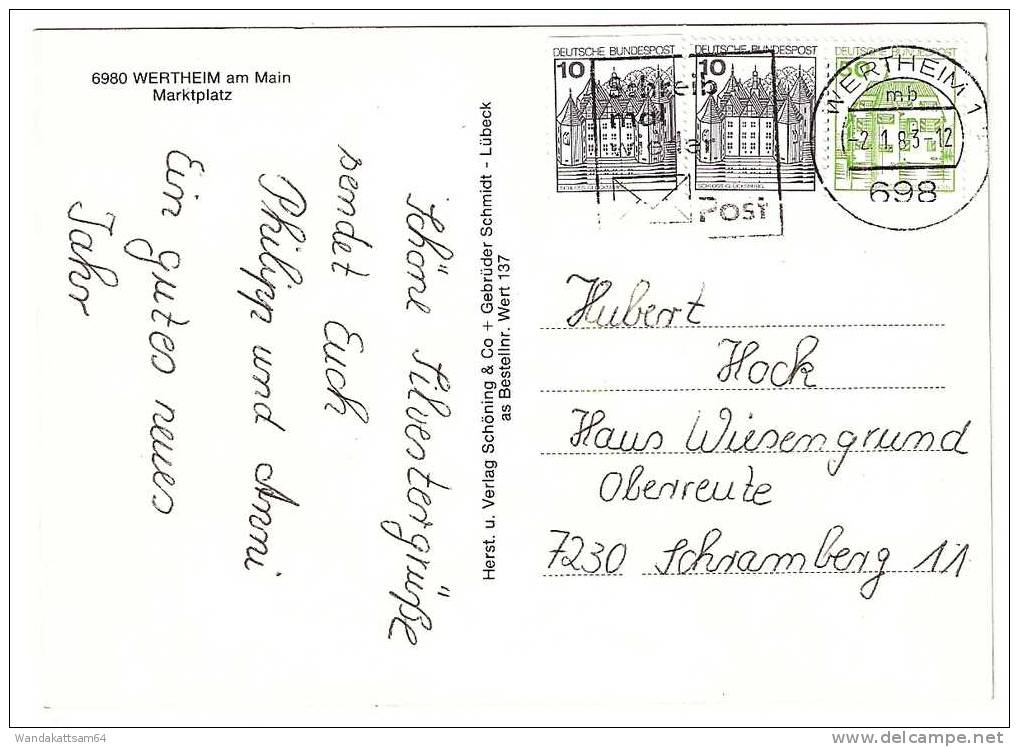 6980 WERTHEIM am Main
Marktplatz
Schöne Silvestergrüße
sendet Euch
Philipp und Anni
Ein gutes neues
Jahr
Herst. u. Verlag Schöning & Co + Gebrüder Schmidt - Lübeck
as Bestellnr. Wert 137
DEUTSCHE BUNDESPOST
10
DEUTSCHE BUNDESPOST
10
DEUTSCHE BUNDESPOST
Schreib
mal
wieder
Post
WERTHEIM 1
mb
-2.1.83-12
698
Hubert
Hock
Haus Wiesengrund
Oberreute
7230 Schramberg 11
Wandakattsam64
www.delcampe.net